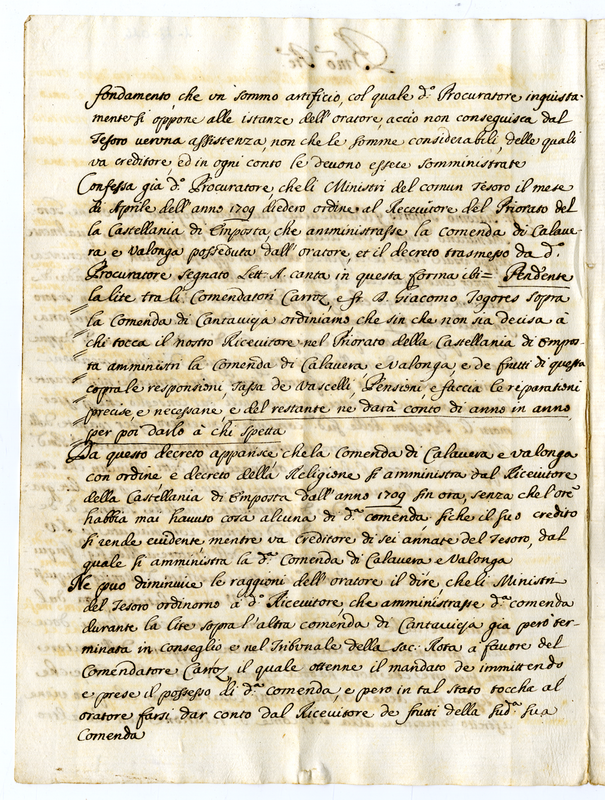 fondamento, che un sommo artificio, col quale d.º Procuratore inquista-
mente si oppone alle istanze dell'oratore, accio non conseguisca dal
Tesoro veruna assistenza, non che le somme considerabili, delle quali
va creditore, ed in ogni conto le devono essere somministrate
Confessa già d.º Procuratore che li Ministri del comun Tesoro il mese
di Aprile dell'anno 1709 diedero ordine al Ricevitore del Priorato del
la Castellania di Emposta, che amministrasse la comenda di Calave-
ra e Valonga posseduta dall'oratore, et il decreto trasmesso da d.º
Procuratore segnato Lett. A. canta in questa forma ibi = Pendente
la lite tra li Comendatori Carroz, e fr. D. Giacomo Togores sopra
la Comenda di Cantavieja ordiniamo, che sin che non sia decisa à
chi tocca il nostro Ricevitore nel Priorato della Castellania di Empos-
ta amministri la Comenda di Calavera e Valonga, e de frutti di questa
copra le responsioni, Tassa de Vascelli, Pensioni, e faccia le reparationi
precise e necessarie, e del restante ne darà conto di anno in anno
per poi darlo à chi spetta
Da questo decreto apparisce, che la Comenda di Calavera e Valonga
con ordine, e decreto della Religione si amministra dal Ricevitore
della Castellania di Emposta dall'anno 1709 sin ora, senza che l'ore
habbia mai havuto cosa alcuna di d.ª comenda, siche il suo credito
si rende evidente mentre va Creditore di sei annate del Tesoro, dal
quale si amministra la d.ª Comenda di Calavera e Valonga
Ne puo diminuire le raggioni dell'oratore il dire che li Ministri
del Tesoro ordinorno à d.º Ricevitore che amministrasse d.ª comenda
durante la lite sopra l'altra comenda di Cantavieja già però ter-
minata in conseglio e nel Tribunale della Sac: Rota à favore del
Comendatore Carroz il quale ottenne il mandato de immittendo
e prese il possesso di d.ª comenda, e però in tal stato toccha al
oratore farsi dar conto dal Ricevitore de frutti della sud.ª sua
Comenda